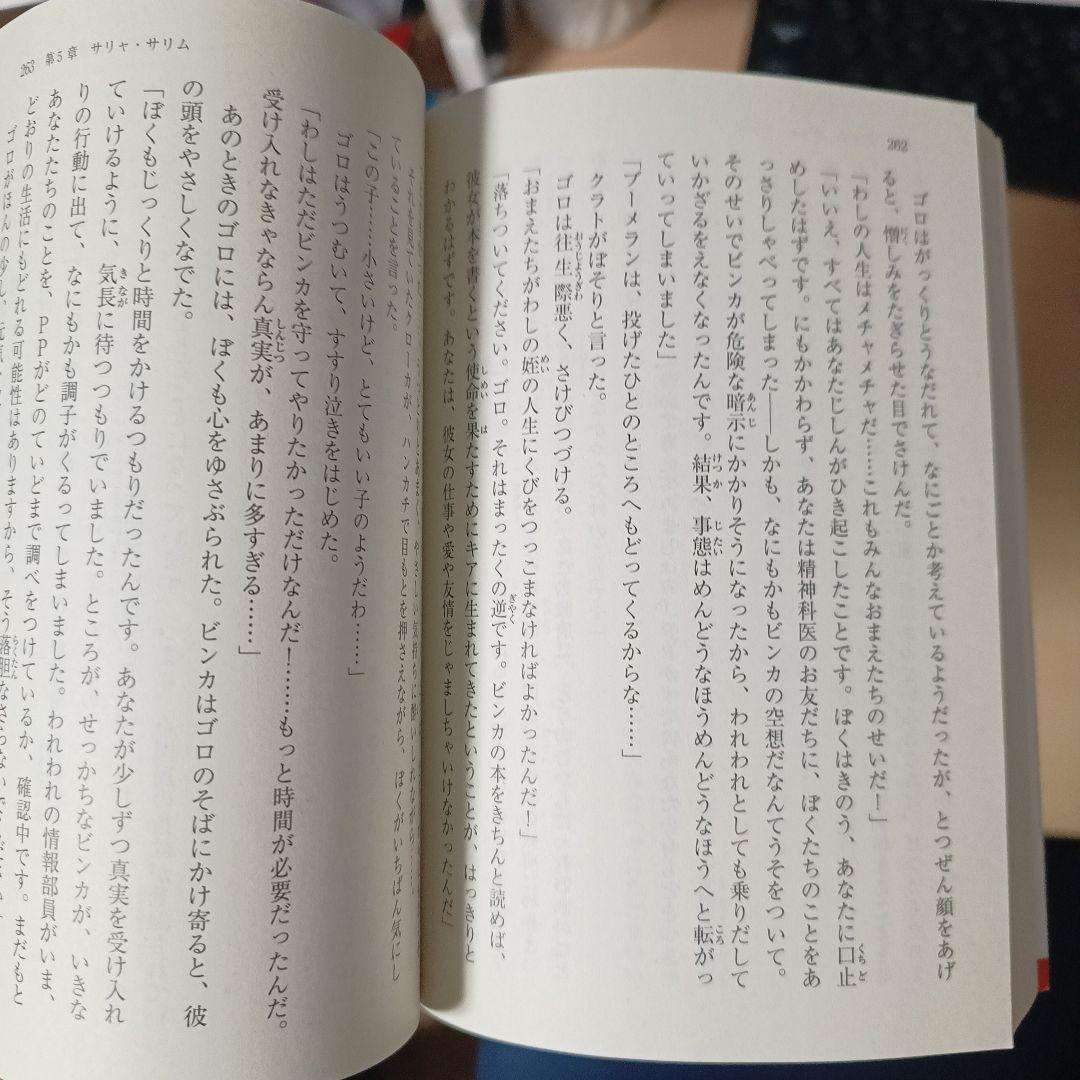 262
ゴロはがっくりとうなだれて、なにごとか考えているようだったが、とつぜん顔をあげ
ると、憎しみをたぎらせた目でさけんだ。
「わしの人生はメチャメチャだ……これもみんなおまえたちのせいだ！」
「いいえ、すべてはあなたじしんがひき起こしたことです。ぼくはきのう、あなたに口止
めしたはずです。にもかかわらず、あなたは精神科医のお友だちに、ぼくたちのことをあ
っさりしゃべってしまった――しかも、なにもかもビンカの空想だなんてうそをついて。
そのせいでビンカが危険な暗示にかかりそうになったから、われわれとしても乗りだして
いかざるをえなくなったんです。結果、事態はめんどうなほうめんどうなほうへと転がっ
ていってしまいました」
「ブーメランは、投げたひとのところへもどってくるからな……」
クラトがぼそりと言った。
ゴロは往生際悪く、さけびつづける。
「おまえたちがわしの姪の人生にくびをつっこまなければよかったんだ！」
「落ちついてください。ゴロ。それはまったくの逆です。ビンカの本をきちんと読めば、
彼女が本を書くという使命を果たすためにキアに生まれてきたということが、はっきりと
わかるはずです。あなたは、彼女の仕事や愛や友情をじゃましちゃいけなかったんだ」
263 第5章 サリャ・サリム
やさしい気持ちに
それを見ていたクローカが、ハンカチで目もとを押さえながら、ぼくがいちばん気にし
ていることを言った。
「この子……小さいけど、とてもいい子のようだわ……」
ゴロはうつむいて、すすり泣きをはじめた。
「わしはただビンカを守ってやりたかっただけなんだ！……もっと時間が必要だったんだ。
受け入れなきゃならん真実が、あまりに多すぎる……」
あのときのゴロには、ぼくも心をゆさぶられた。ビンカはゴロのそばにかけ寄ると、彼
の頭をやさしくなでた。
「ぼくもじっくりと時間をかけるつもりだったんです。あなたが少しずつ真実を受け入れ
ていけるように、気長に待つつもりでいました。ところが、せっかちなビンカが、いきな
りの行動に出て、なにもかも調子がくるってしまいました。われわれの情報部員がいま、
あなたたちのことを、PPがどのていどまで調べをつけているか、確認中です。まだもと
どおりの生活にもどれる可能性はありますから、そう落胆なさらないで
ゴロがほんの少し、